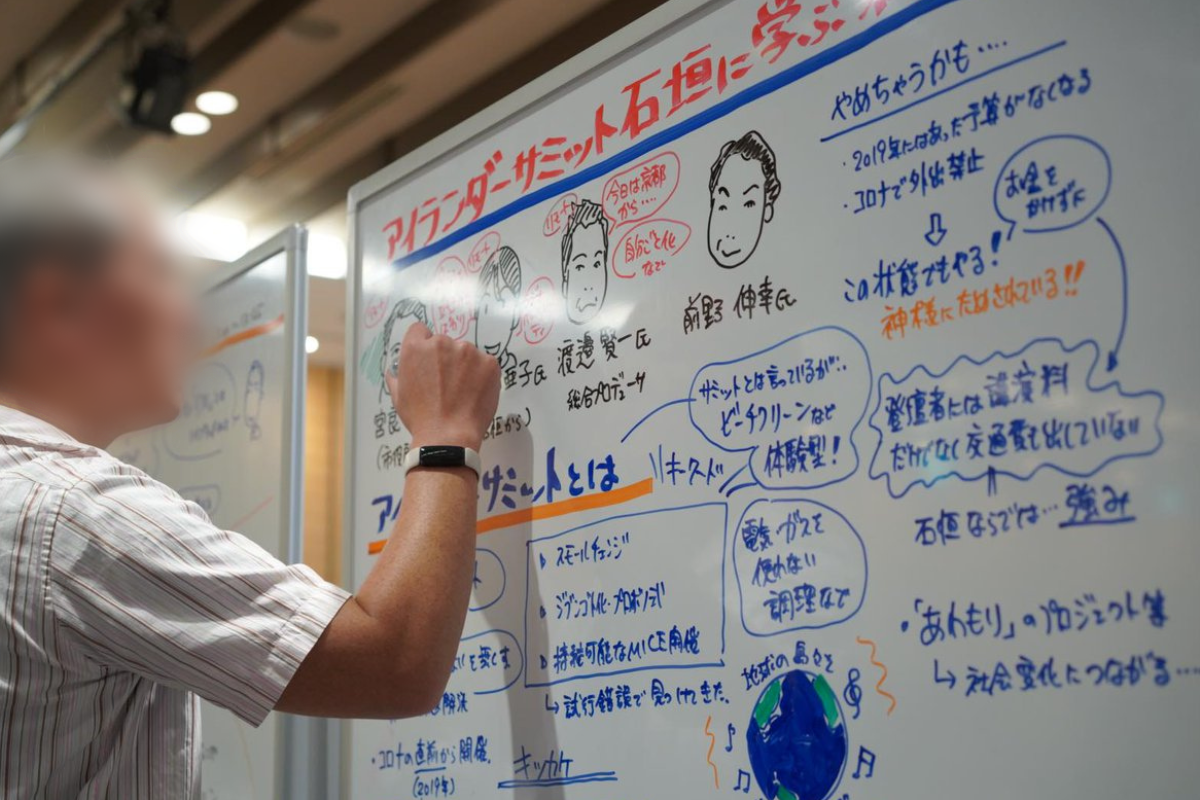 アイランダーサミット石垣に学ぶ
リモート
今日は京都
から‥‥
自分ごと化
なで
宮良
亜子氏
渡邉 賢一氏
総合プロデューサ
前野 伸幸氏
アイ
サミットとは
キーワード
サミットとは言っているが‥
ビーチクリーンなど
体験型!
スモールチェンジ
ジブンゴト化・プロボノ
持続可能なMICE開催
↳試行錯誤で見つけてきた。
電気・ガスを
使わない
調理など
を無くす
解決
・コロナの直前から開催。
(2019年)
キッカケ
地球の
やめちゃうかも‥‥
・2019年にはあった予算がなくなる
・コロナで外出禁止
お金を
かけずに
この状態でもやる!
神様にためされている!!
登壇者には講演料
だけでなく交通費も出していない
石垣ならでは… 強み
・「あわもり」のプロジェクト等
↳社会変化につながる…